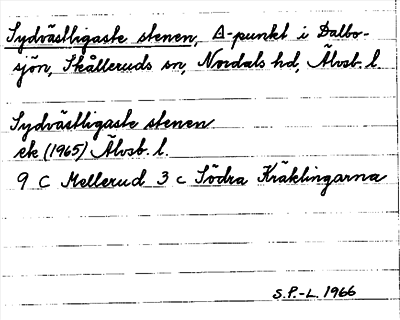 Sydvästligaste stenen, Δ-punkt i Dalbo-
sjön, Skålleruds sn, Nordals hd, Älvsb. l.
Sydvästligaste stenen
ek (1965) Älvsb. l.
9 C Mellerud 3 c Södra Kräklingarna
S.P.-L. 1966